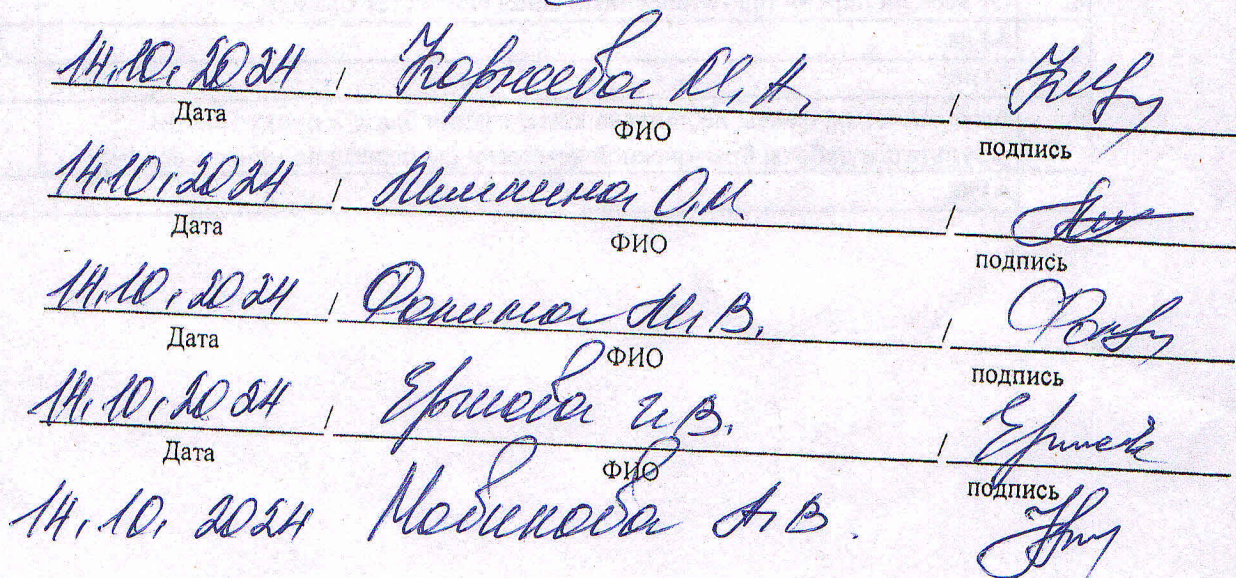 14.10.2024 / Корнеева М.А. /
Дата ФИО подпись
14.10.2024 / О.М. /
Дата ФИО подпись
14.10.2024 / Фонина М.В. /
Дата ФИО подпись
14.10.2024 / Ершова И.В. /
Дата ФИО подпись
14.10.2024 А.В.